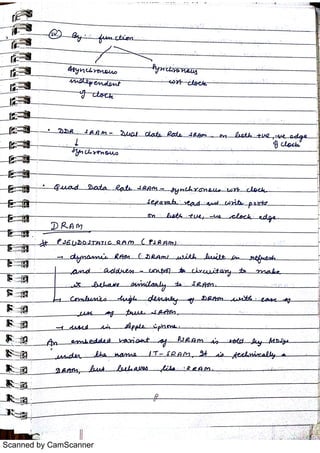 (iv) By function
Asynchronous Synchronous
independent wrt clock
of clock
• DDR SRAM - Dual data Rate SRAM - on both +ve, -ve edge
of clock
Synchronous
• Quad Data Rate SRAM - synchronous wrt clock
separate read and write ports
on both +ve, -ve clock edge
DRAM
* PSEUDOSTATIC RAM (PSRAM)
→ dynamic RAM (DRAM) with built in refresh
and address - control circuitary to make
it behave similarly to SRAM.
→ Combines high density of DRAM with ease of
use of true SRAM.
→ used in Apple iphone.
An embedded variant of PSRAM is sold by
under the name 1T-SRAM. It is technically a
DRAM, but behaves like SRAM.
Scanned by CamScanner